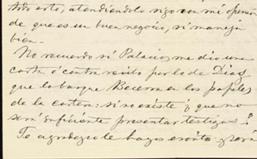 todo esto, atendiendolo sigo con mi opinion
de que es un buen negocio, si maneja
bien.
No recuerdo si Palacio me dio una
carta o contra recibo por lo de Diaz,
que lo busque Becerra en los papeles
de la cartera: si no existe ¿que no
será suficiente presentar testigos?
Te agradezco le hayas escrito